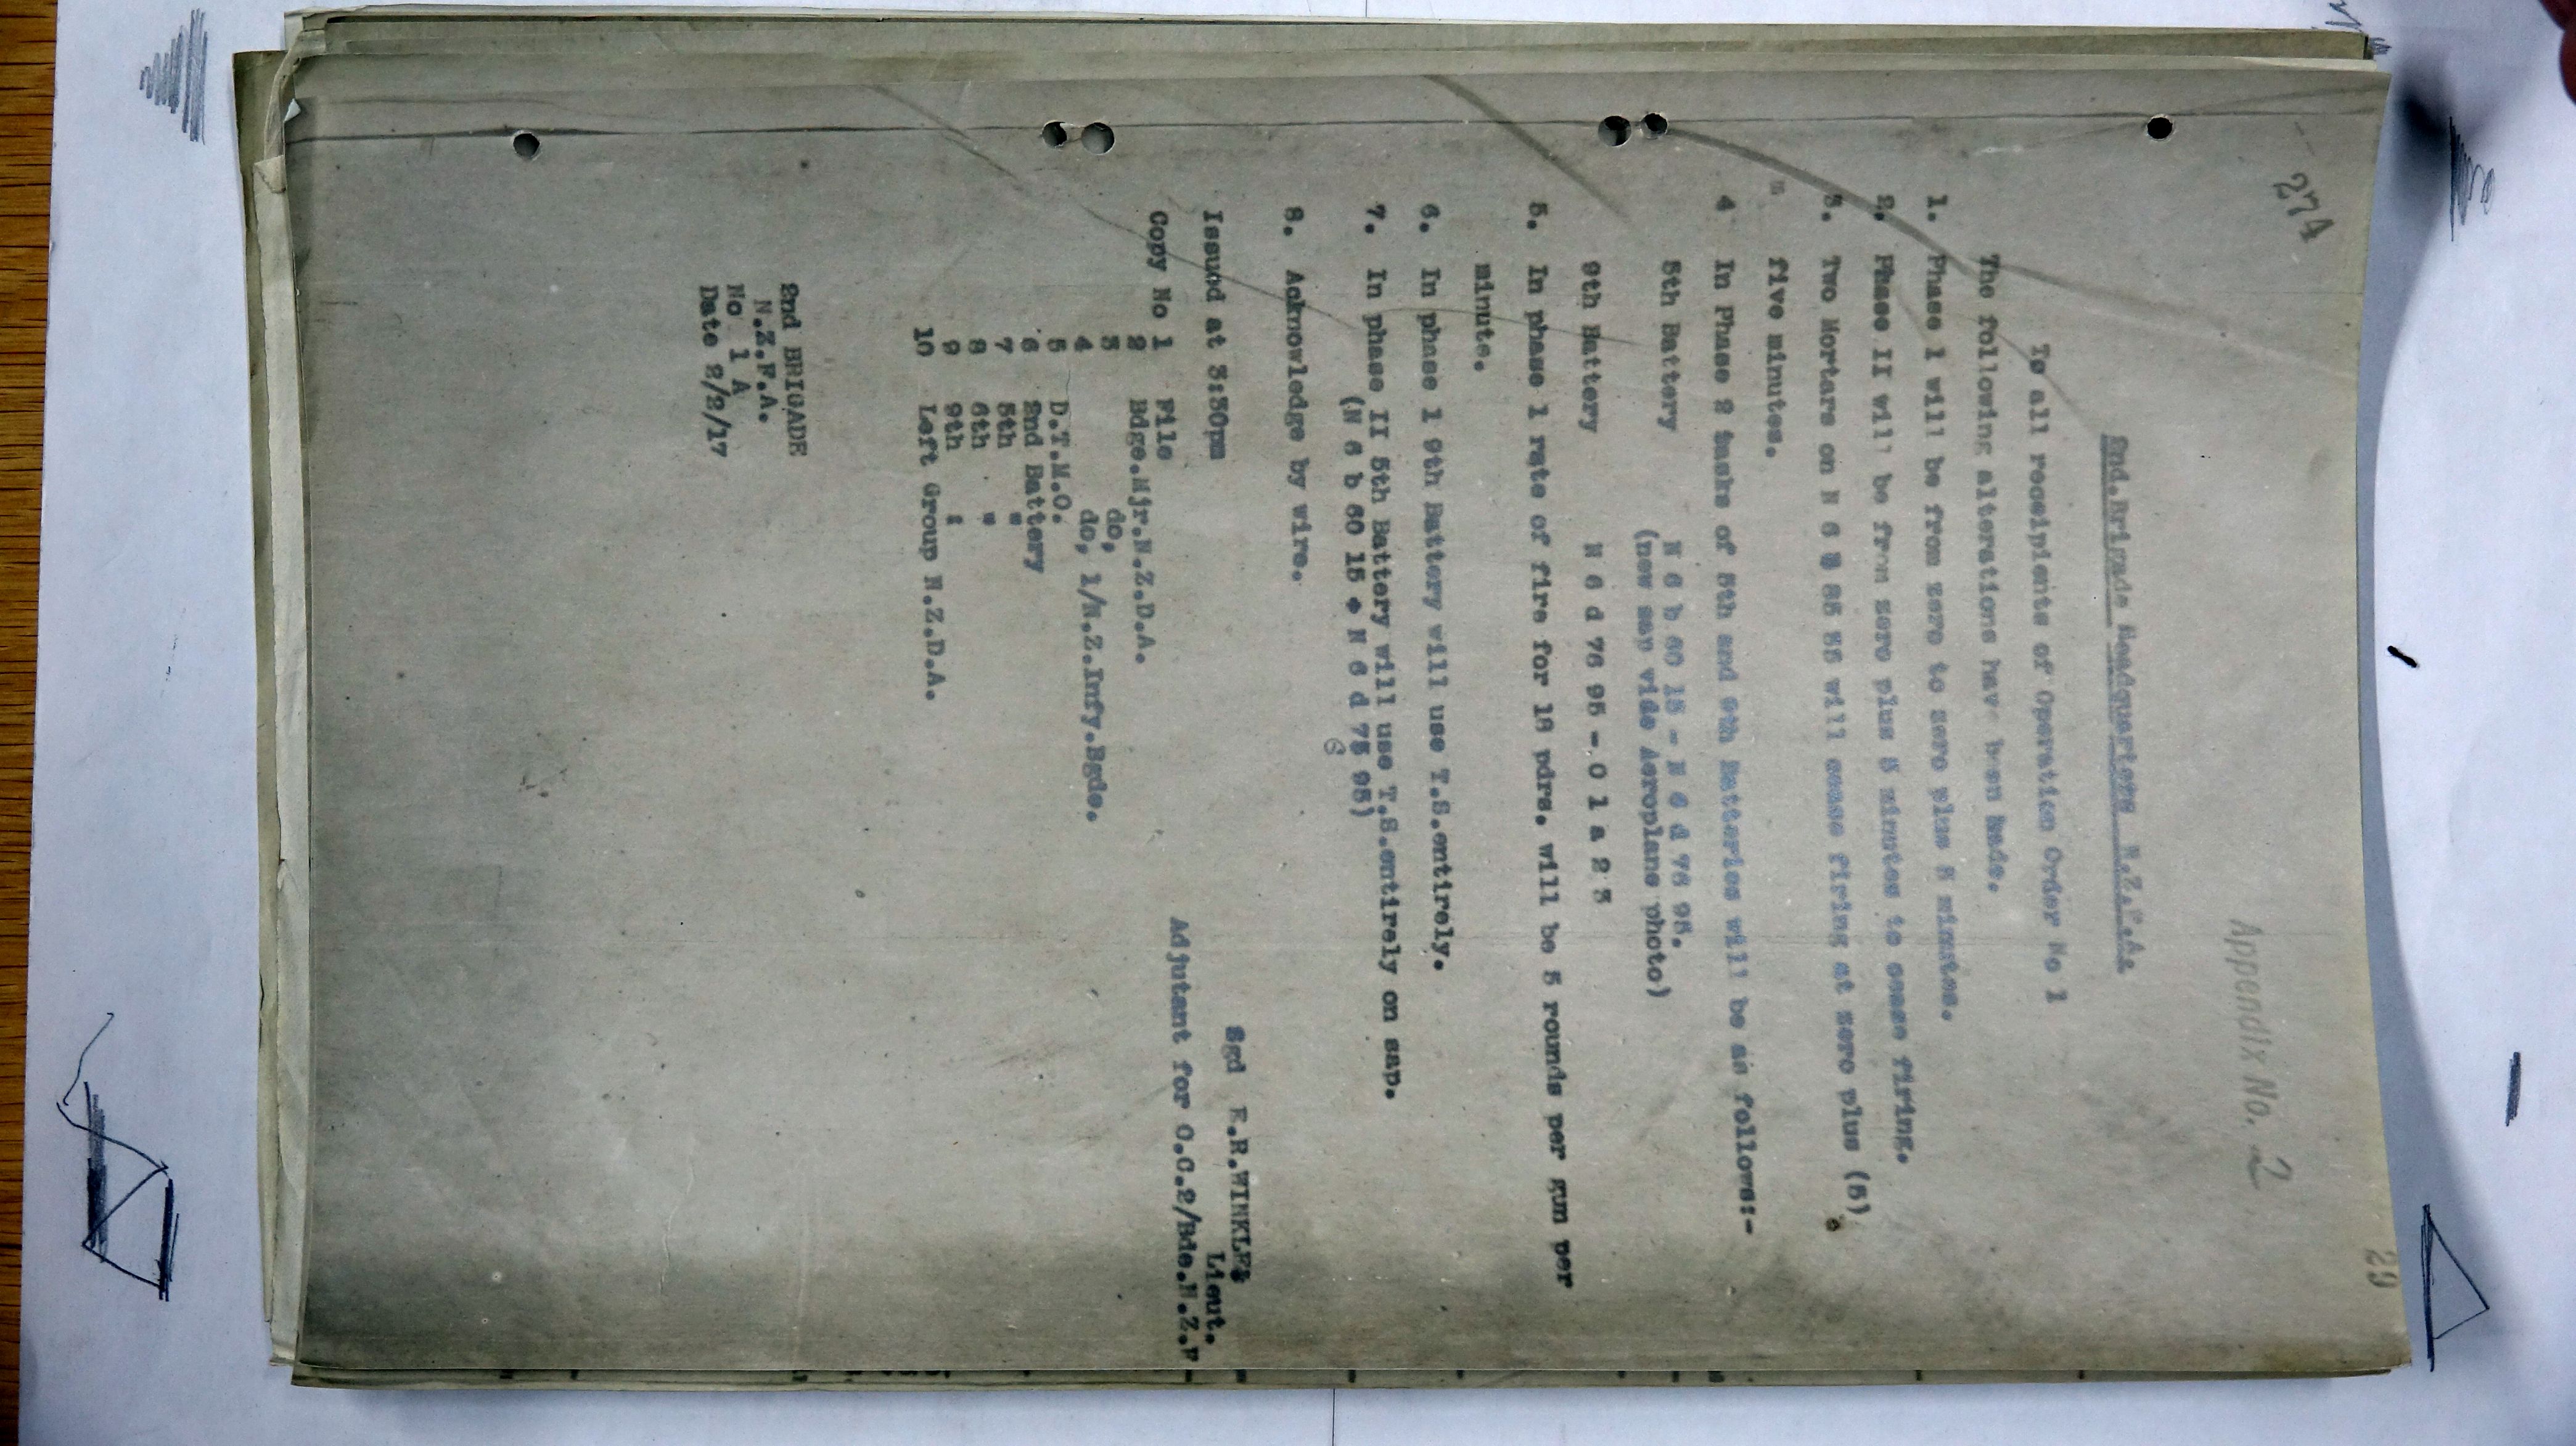 274
29
Appendix No. 2
2nd.Brigade Headquarters N.Z.F.A.
To all receipients of Operation Order No 1
The following alterations have been made.
1. Phase 1 will be from zero to zero plus 5 minutes.
2. Phase II will be from zero plus 5 minutes to cease firing.
3. Two Mortars on N 6 85 55 will cease firing at zero plus (5)
" five minutes.
4 In Phase 2 tasks of 5th and 9th Batteries will be as follows:-
5th Battery N 6 b 60 15 - N 6 d 76 95.
(new sap vide Aeroplane photo)
9th Battery N 6 d 76 95 - O 1 a 2 3
5. In phase 1 rate of fire for 18 pdrs. will be 5 rounds per gun per
minute.
6. In phase 1 9th Battery will use T.S.entirely.
7. In phase II 5th Battery will use T.S.entirely on sap.
(N 6 b 60 15 N 6 d 76 95)
8. Acknowledge by wire.
Sgd E.R.WINKLER
Lieut.
Issued at 3:30pm
Adjutant for O.C.2/Bde.N.Z.F
Copy No 1 File
2 Bdge.Mjr.N.Z.D.A.
3 do,
4 do, 1/N.Z.Infy.Bgde.
5 D.T.M.O.
6 2nd Battery
7 5th "
8 6th "
9 9th :
10 Left Group N.Z.D.A.
2nd BRIGADE
N.Z.F.A.
No 1 A
Date 2/2/17